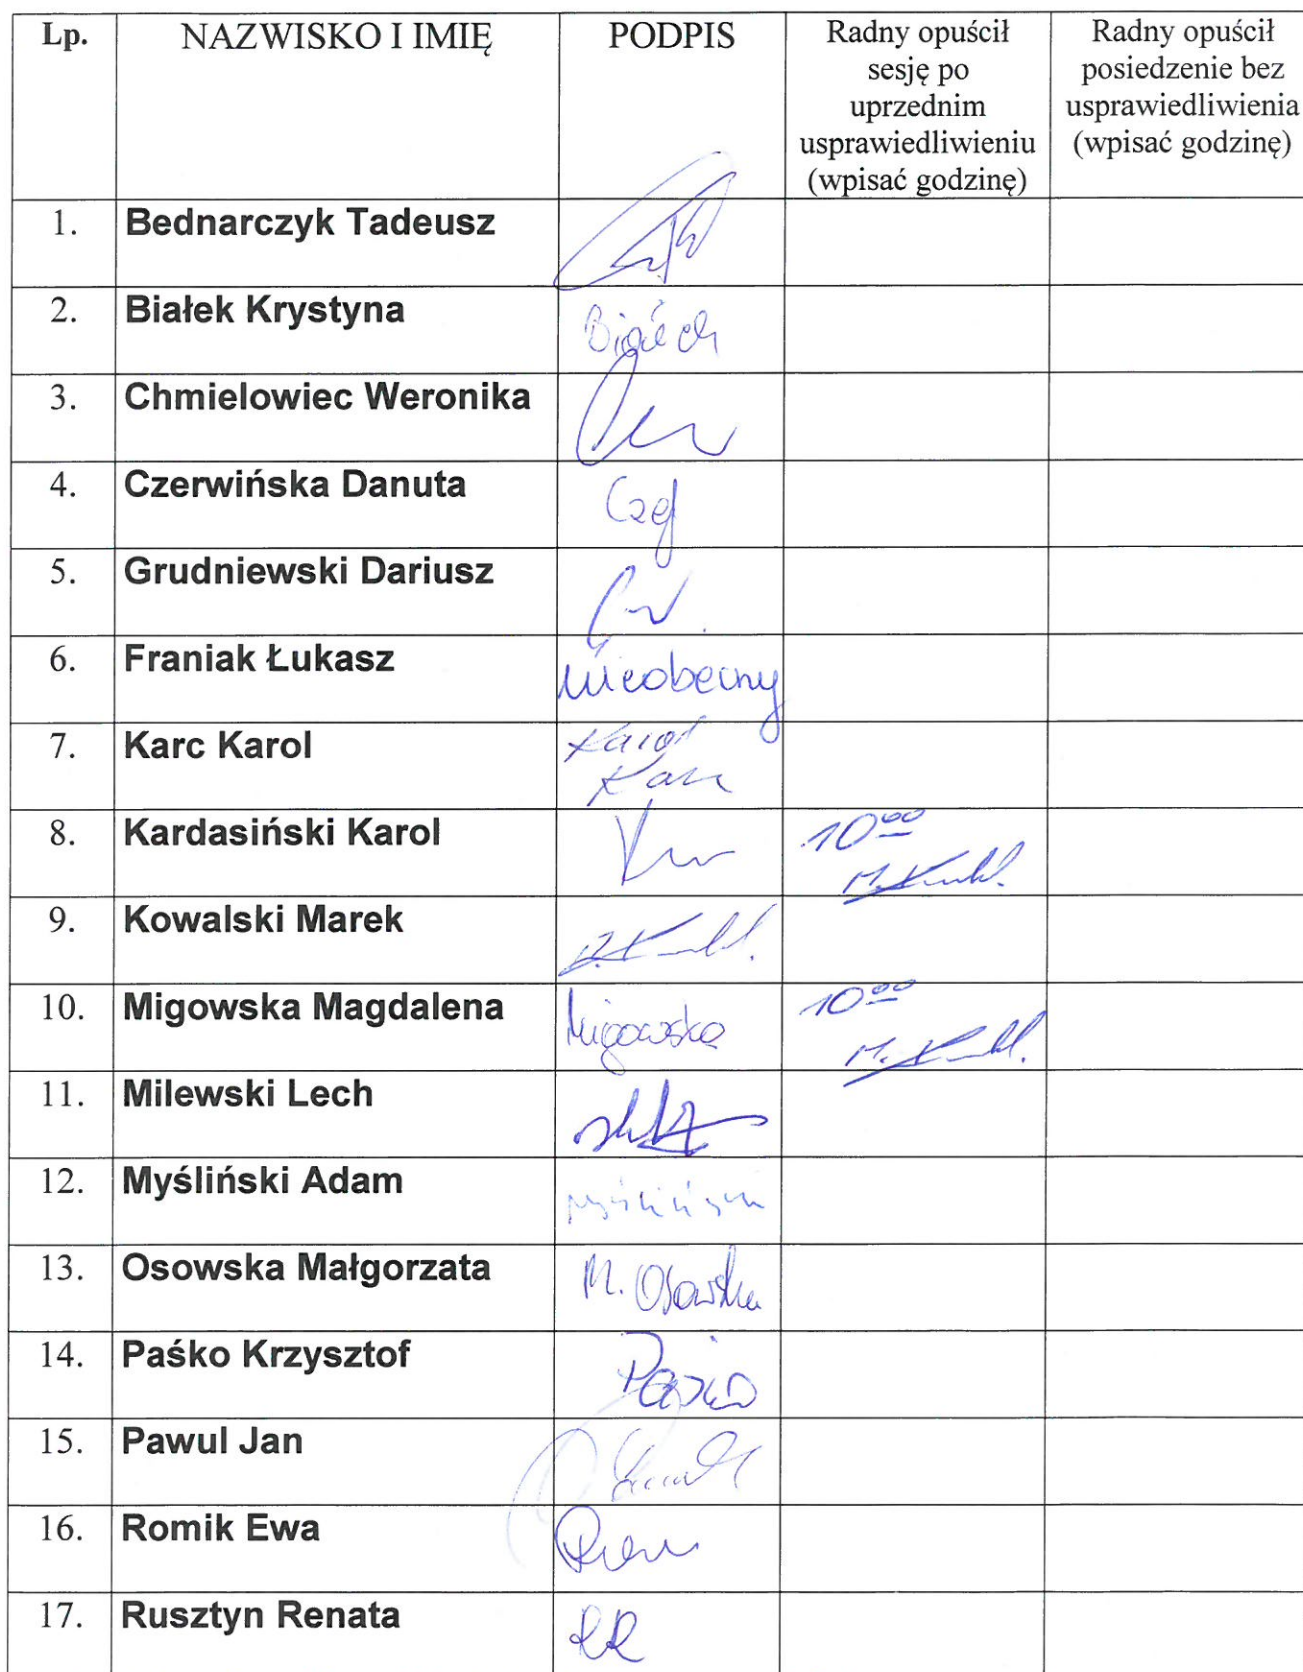 Lp. NAZWISKO I IMIĘ PODPIS Radny opuścił Radny opuścił
sesję po posiedzenie bez
uprzednim usprawiedliwienia
usprawiedliwieniu (wpisać godzinę)
(wpisać godzinę)
1. Bednarczyk Tadeusz
2. Białek Krystyna
3. Chmielowiec Weronika
4. Czerwińska Danuta
5. Grudniewski Dariusz
6. Franiak Łukasz nieobecny
7. Karc Karol Karol
Karc
8. Kardasiński Karol 10⁰⁰
9. Kowalski Marek
10. Migowska Magdalena Migowska 10⁰⁰
11. Milewski Lech
12. Myśliński Adam
13. Osowska Małgorzata M. Osowska
14. Paśko Krzysztof Paśko
15. Pawul Jan
16. Romik Ewa
17. Rusztyn Renata RR